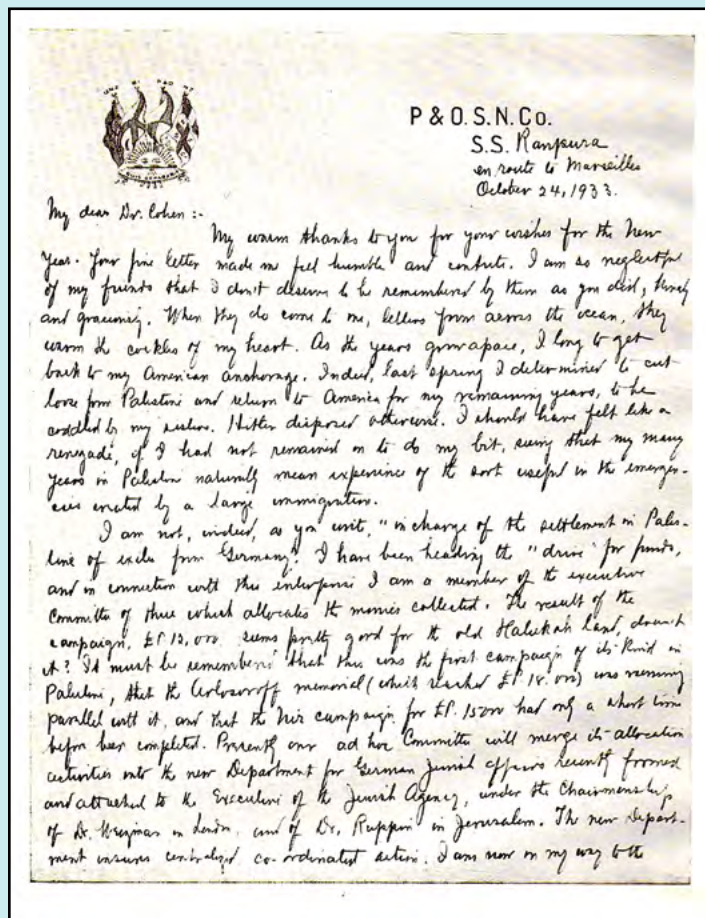 P & O. S. N. Co.
S.S. Ranpura
en route to Marseilles
October 24, 1933.
My dear Dr. Cohen :-
My warm thanks to you for your wishes for the New
Year. Your fine letter made me feel humble and contrite. I am so neglectful
of my friends that I don't deserve to be remembered by them as you did,
and graciously. When they do come to me, letters from across the ocean, they
warm the cockles of my heart. As the years grow apace, I long to get
back to my American anchorage. Indeed, last spring I determined to cut
loose from Palestine and return to America for my remaining years, to be
coddled by my sisters. Hitler disposed otherwise. I should have felt like a
renegade, if I had not remained on to do my bit, seeing that my many
years in Palestine naturally mean experience of the sort useful in the emergen-
cies created by a large immigration.
I am not, indeed, as you write, "in charge of the settlement in Pales-
tine of exiles from Germany". I have been heading the "drive" for funds,
and in connection with this enterprise I am a member of the executive
Committee of three which allocates the monies collected. The result of the
campaign, £P. 13,000 seems pretty good for the old Halukah land, doesn't
it? It must be remembered that this was the first campaign of its kind in
Palestine, that the Arlosoroff memorial (which reached £P. 18.000) was running
parallel with it, and that the campaign for £P. 15000 had only a short time
before been completed. Presently our ad hoc Committee will merge its allocation
activities into the new Department for German Jewish affairs recently formed
and attached to the Executive of the Jewish Agency, under the Chairmanship
of Dr. Weizman in London, and of Dr. Ruppin in Jerusalem. The new Depart-
ment insures centralized co-ordinated action. I am now on my way to the